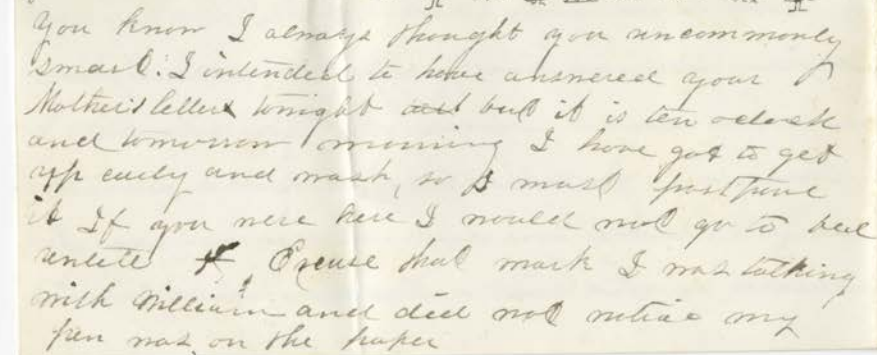 you know I always thought you uncommonly
smart. I intended to have answered your
Mother's letter tonight but it is ten oclock
and tomorrow morning I have got to get
up early and wash, so I must postpone
it If you were here I would not go to bed
untill Excuse that mark I was talking
with William and did not notice my
pen was on the paper